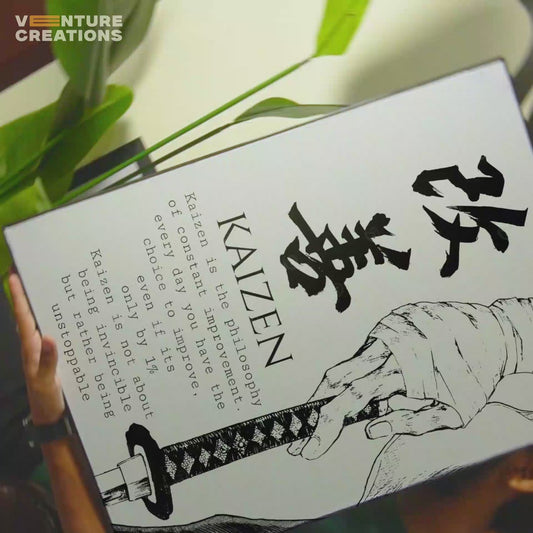 VENTURE
CREATIONS
改
善
KAIZEN
Kaizen is the philosophy
of constant improvement.
every day you have the
choice to improve,
even if its
only by 1%
Kaizen is not about
being invincible
but rather being
unstoppable